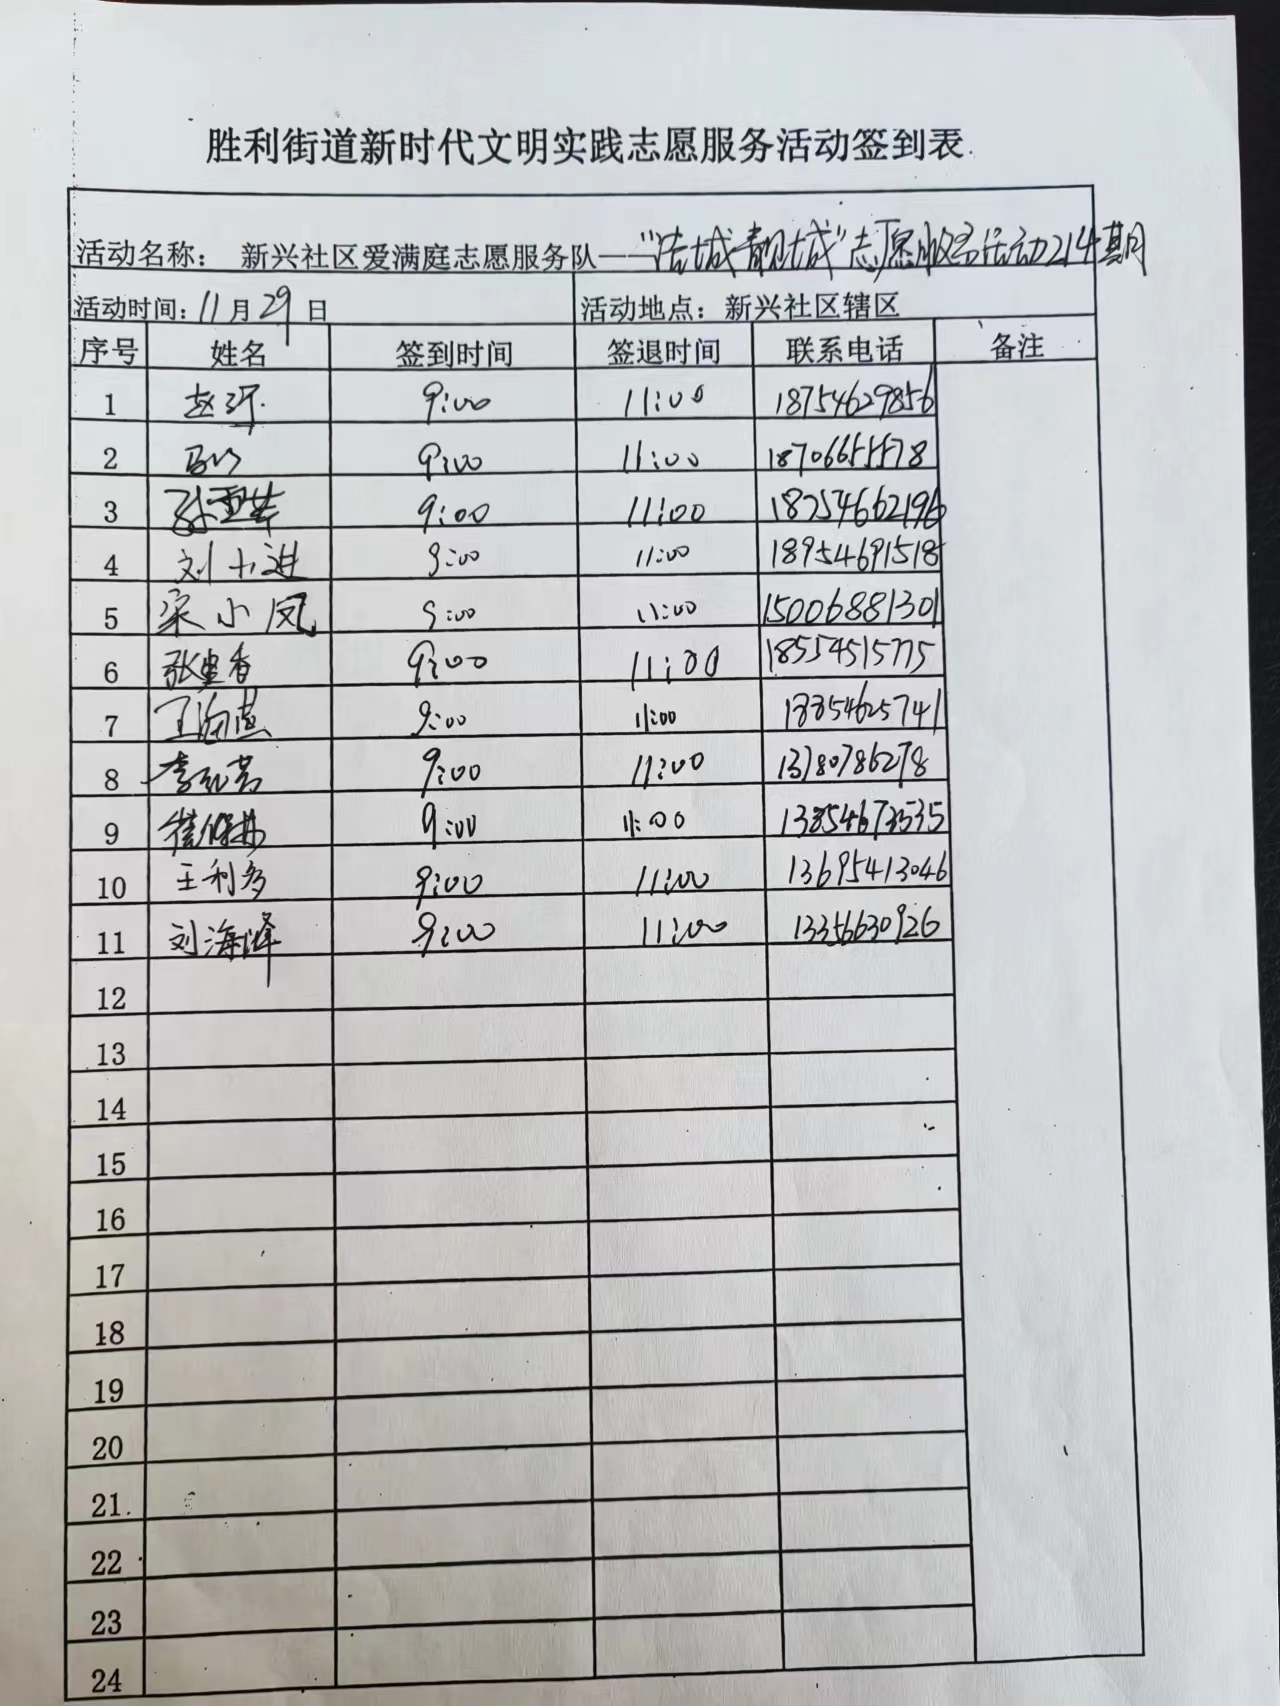 胜利街道新时代文明实践志愿服务活动签到表
活动名称： 新兴社区爱满庭志愿服务队——“洁城靓城”志愿服务活动214期
活动时间：11月29日 活动地点：新兴社区辖区
序号 姓名 签到时间 签退时间 联系电话 备注
1 赵 9:00 11:00 18754629856
2 9:00 11:00 18706655578
3 孙 9:00 11:00 18254662196
4 刘小进 9:00 11:00 18954691518
5 宋小凤 9:00 11:00 15006881301
6 张 香 9:00 11:00 18554515775
7 王海燕 9:00 11:00
8 李 9:00 11:00 13780786278
9 9:00 11:00 13854673535
10 王利多 9:00 11:00 13695413046
11 刘海峰 9:00 11:00 13356630926
12
13
14
15
16
17
18
19
20
21
22
23
24